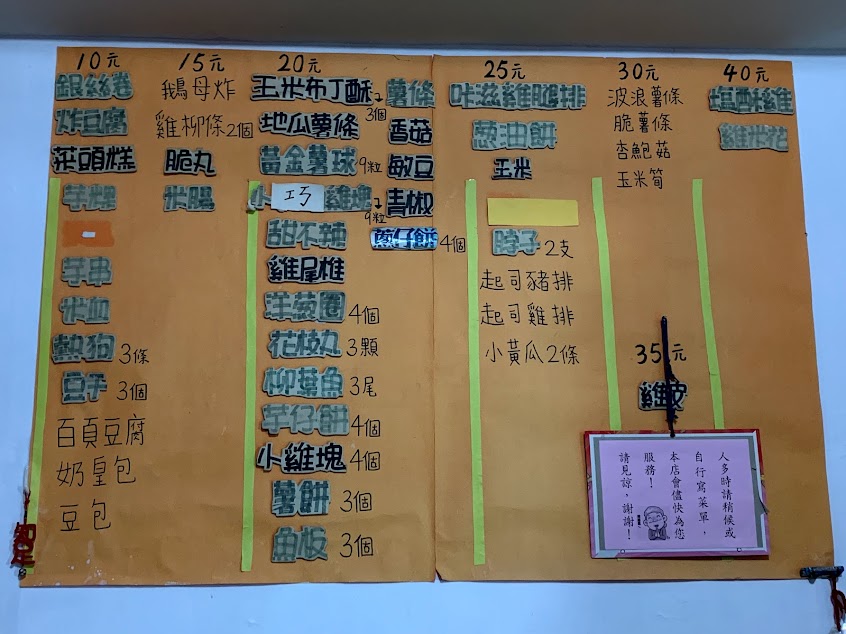 10元
銀絲卷
炸豆腐
菜頭粿
芋粿
芋串
米血
熱狗 3條
豆干 3個
百頁豆腐
奶皇包
豆包
15元
鵝母炸
雞柳條2個
脆丸
米腸
20元
玉米布丁酥 3個
地瓜薯條
黃金薯球 9粒
小 巧 雞塊 9粒
甜不辣
雞尾椎
洋蔥圈 4個
花枝丸 3顆
柳葉魚 3尾
芋仔餅 4個
小雞塊 4個
薯餅 3個
魚板 3個
薯條
香菇
敏豆
青椒
蔥仔餅 4個
25元
咔滋雞腿排
蔥油餅
玉米
脖子 2支
起司豬排
起司雞排
小黃瓜2條
30元
波浪薯條
脆薯條
杏鮑菇
玉米筍
35元
雞皮
40元
鹽酥雞
雞米花
人多時請稍候或
自行寫菜單，
本店會儘快為您
服務！
請見諒，謝謝！